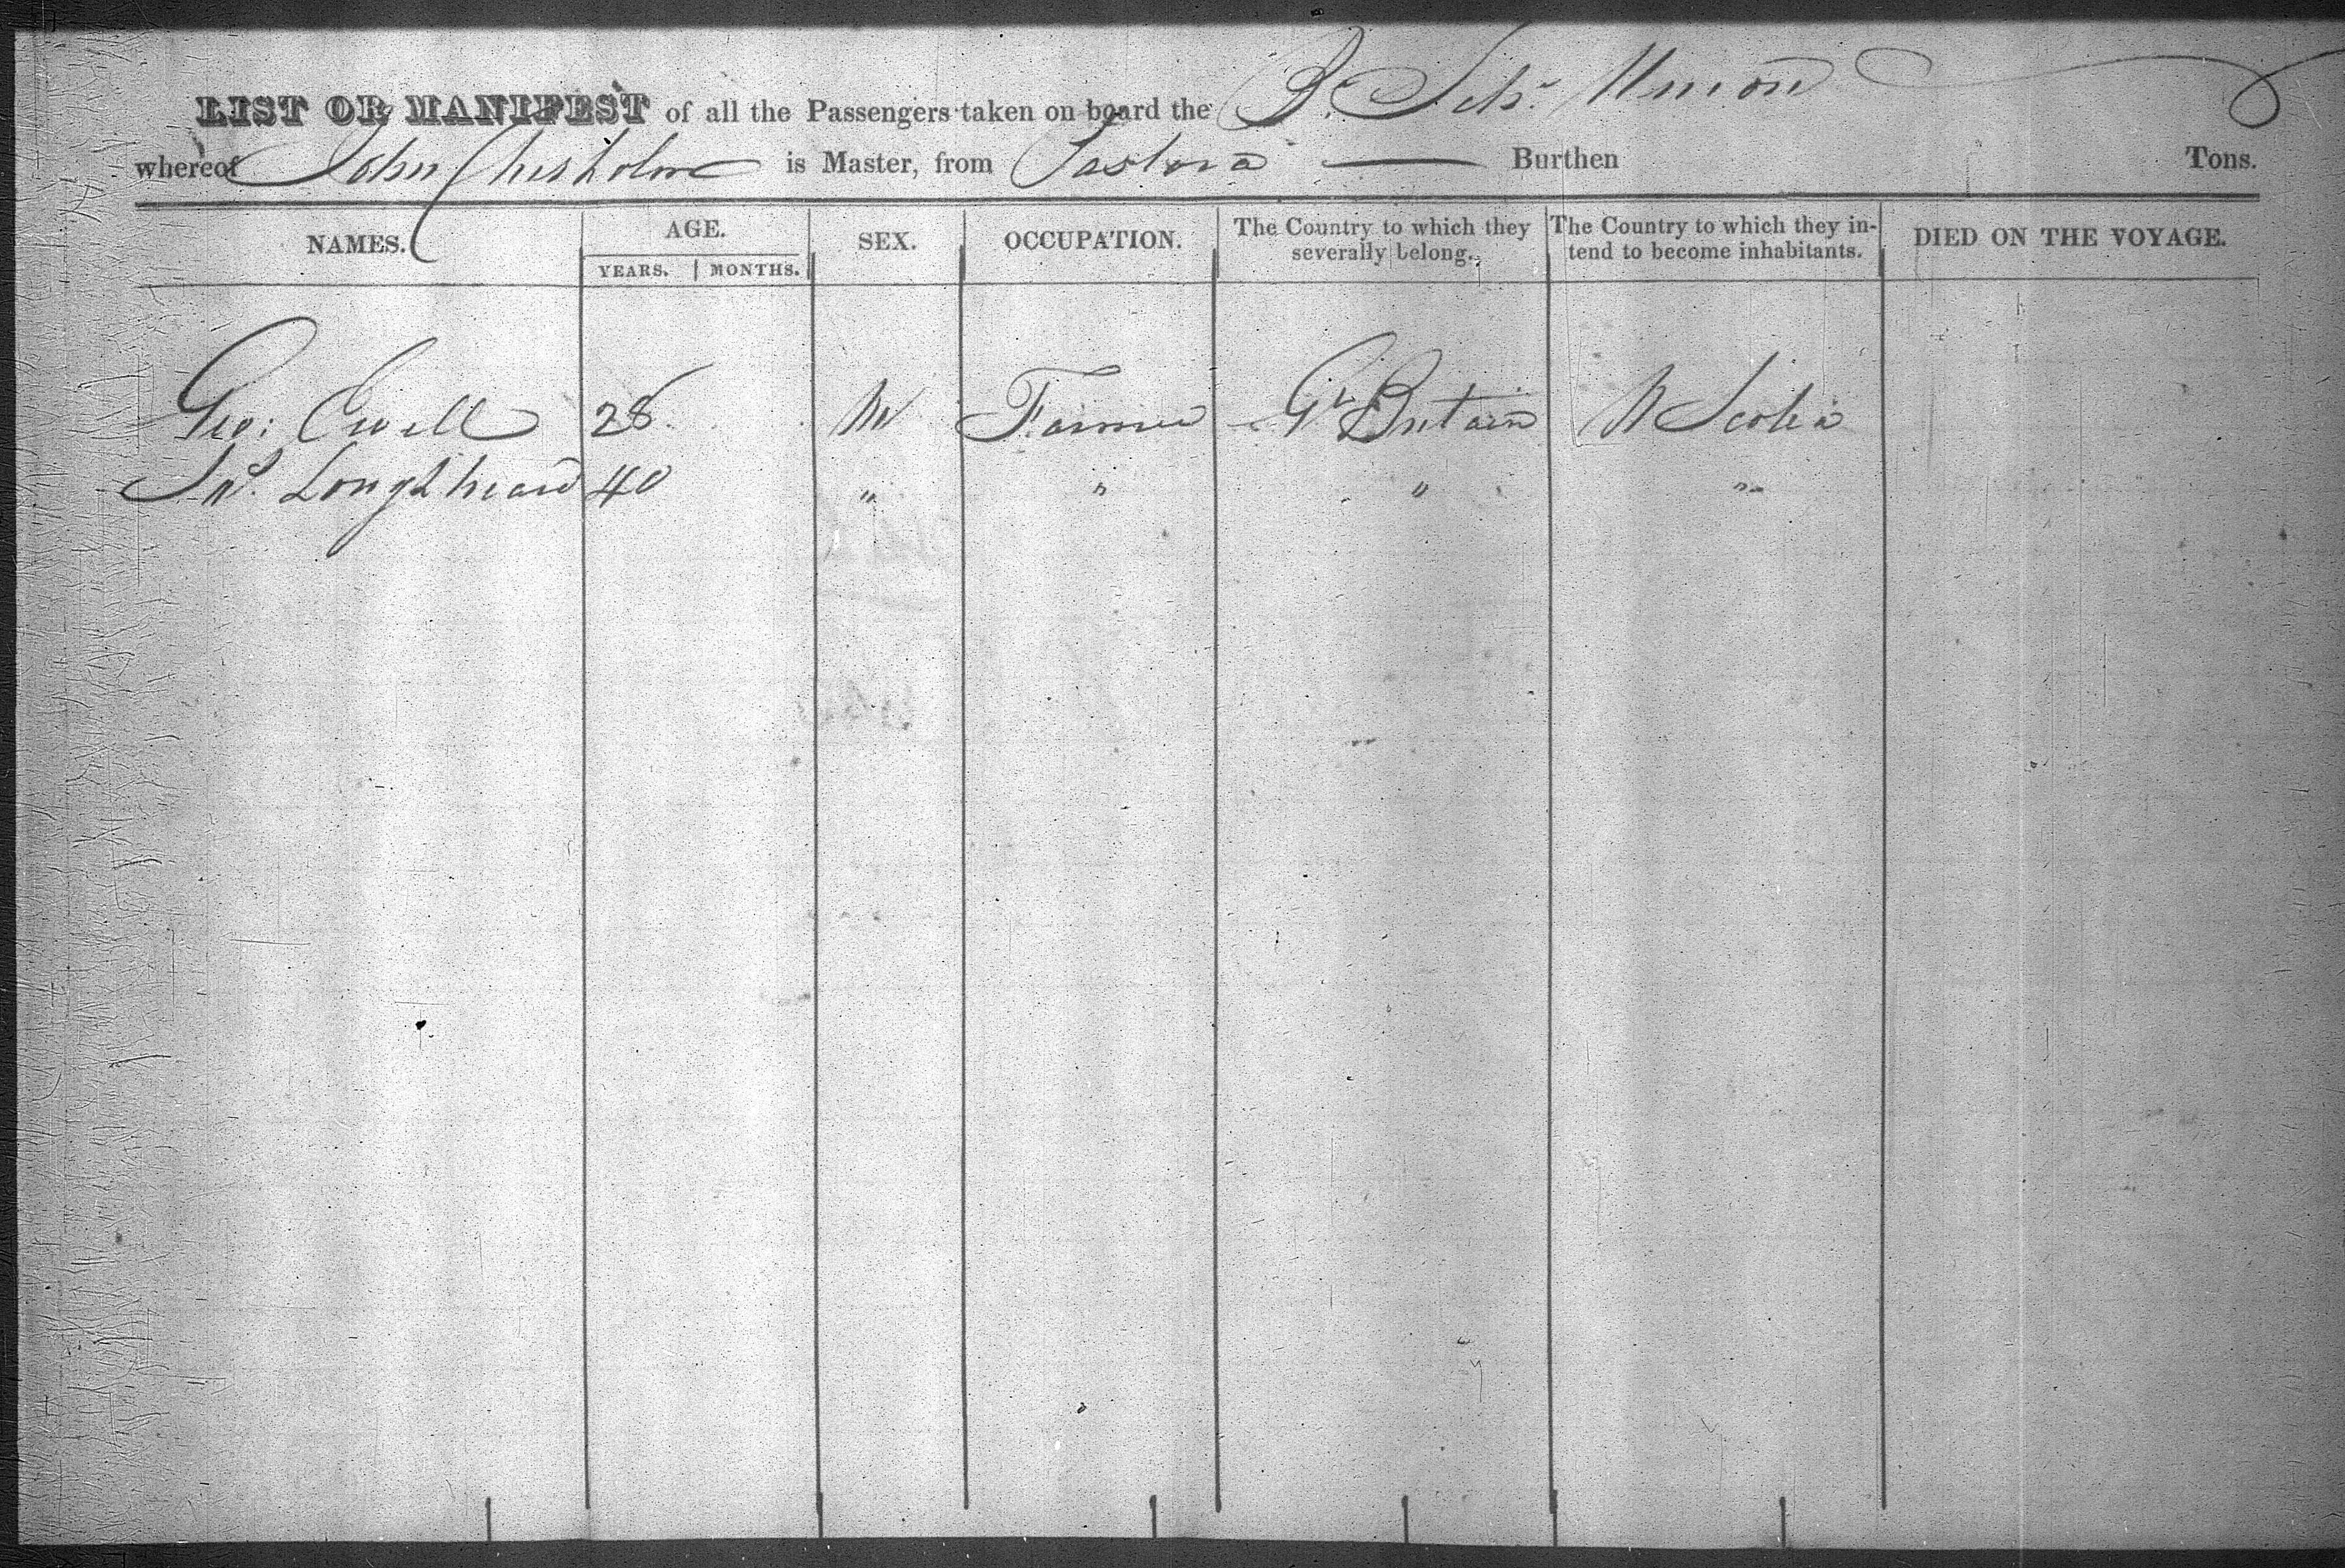 LIST OR MANIFEST of all the Passengers taken on board the Br. Schr. Union
whereof John Chisholm is Master, from Burthen Tons.
NAMES. AGE. SEX. OCCUPATION. The Country to which they severally belong. The Country to which they intend to become inhabitants. DIED ON THE VOYAGE.
YEARS. MONTHS.
Geo: Ewell 28 M Farmer Gt Britain N Scotia
Jno. Loughheard 40 " " " "